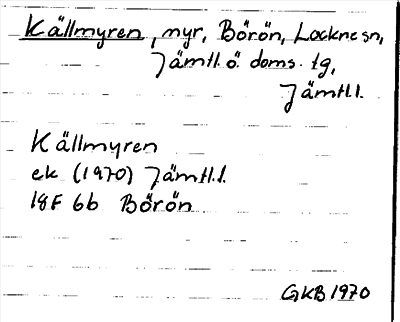 Källmyren, myr, Börön, Lockne sn,
Jämtl. ö. doms. tg,
Jämtl.l.
Källmyren
ek (1970) Jämtl.l.
18F 6b Börön
GKB 1970